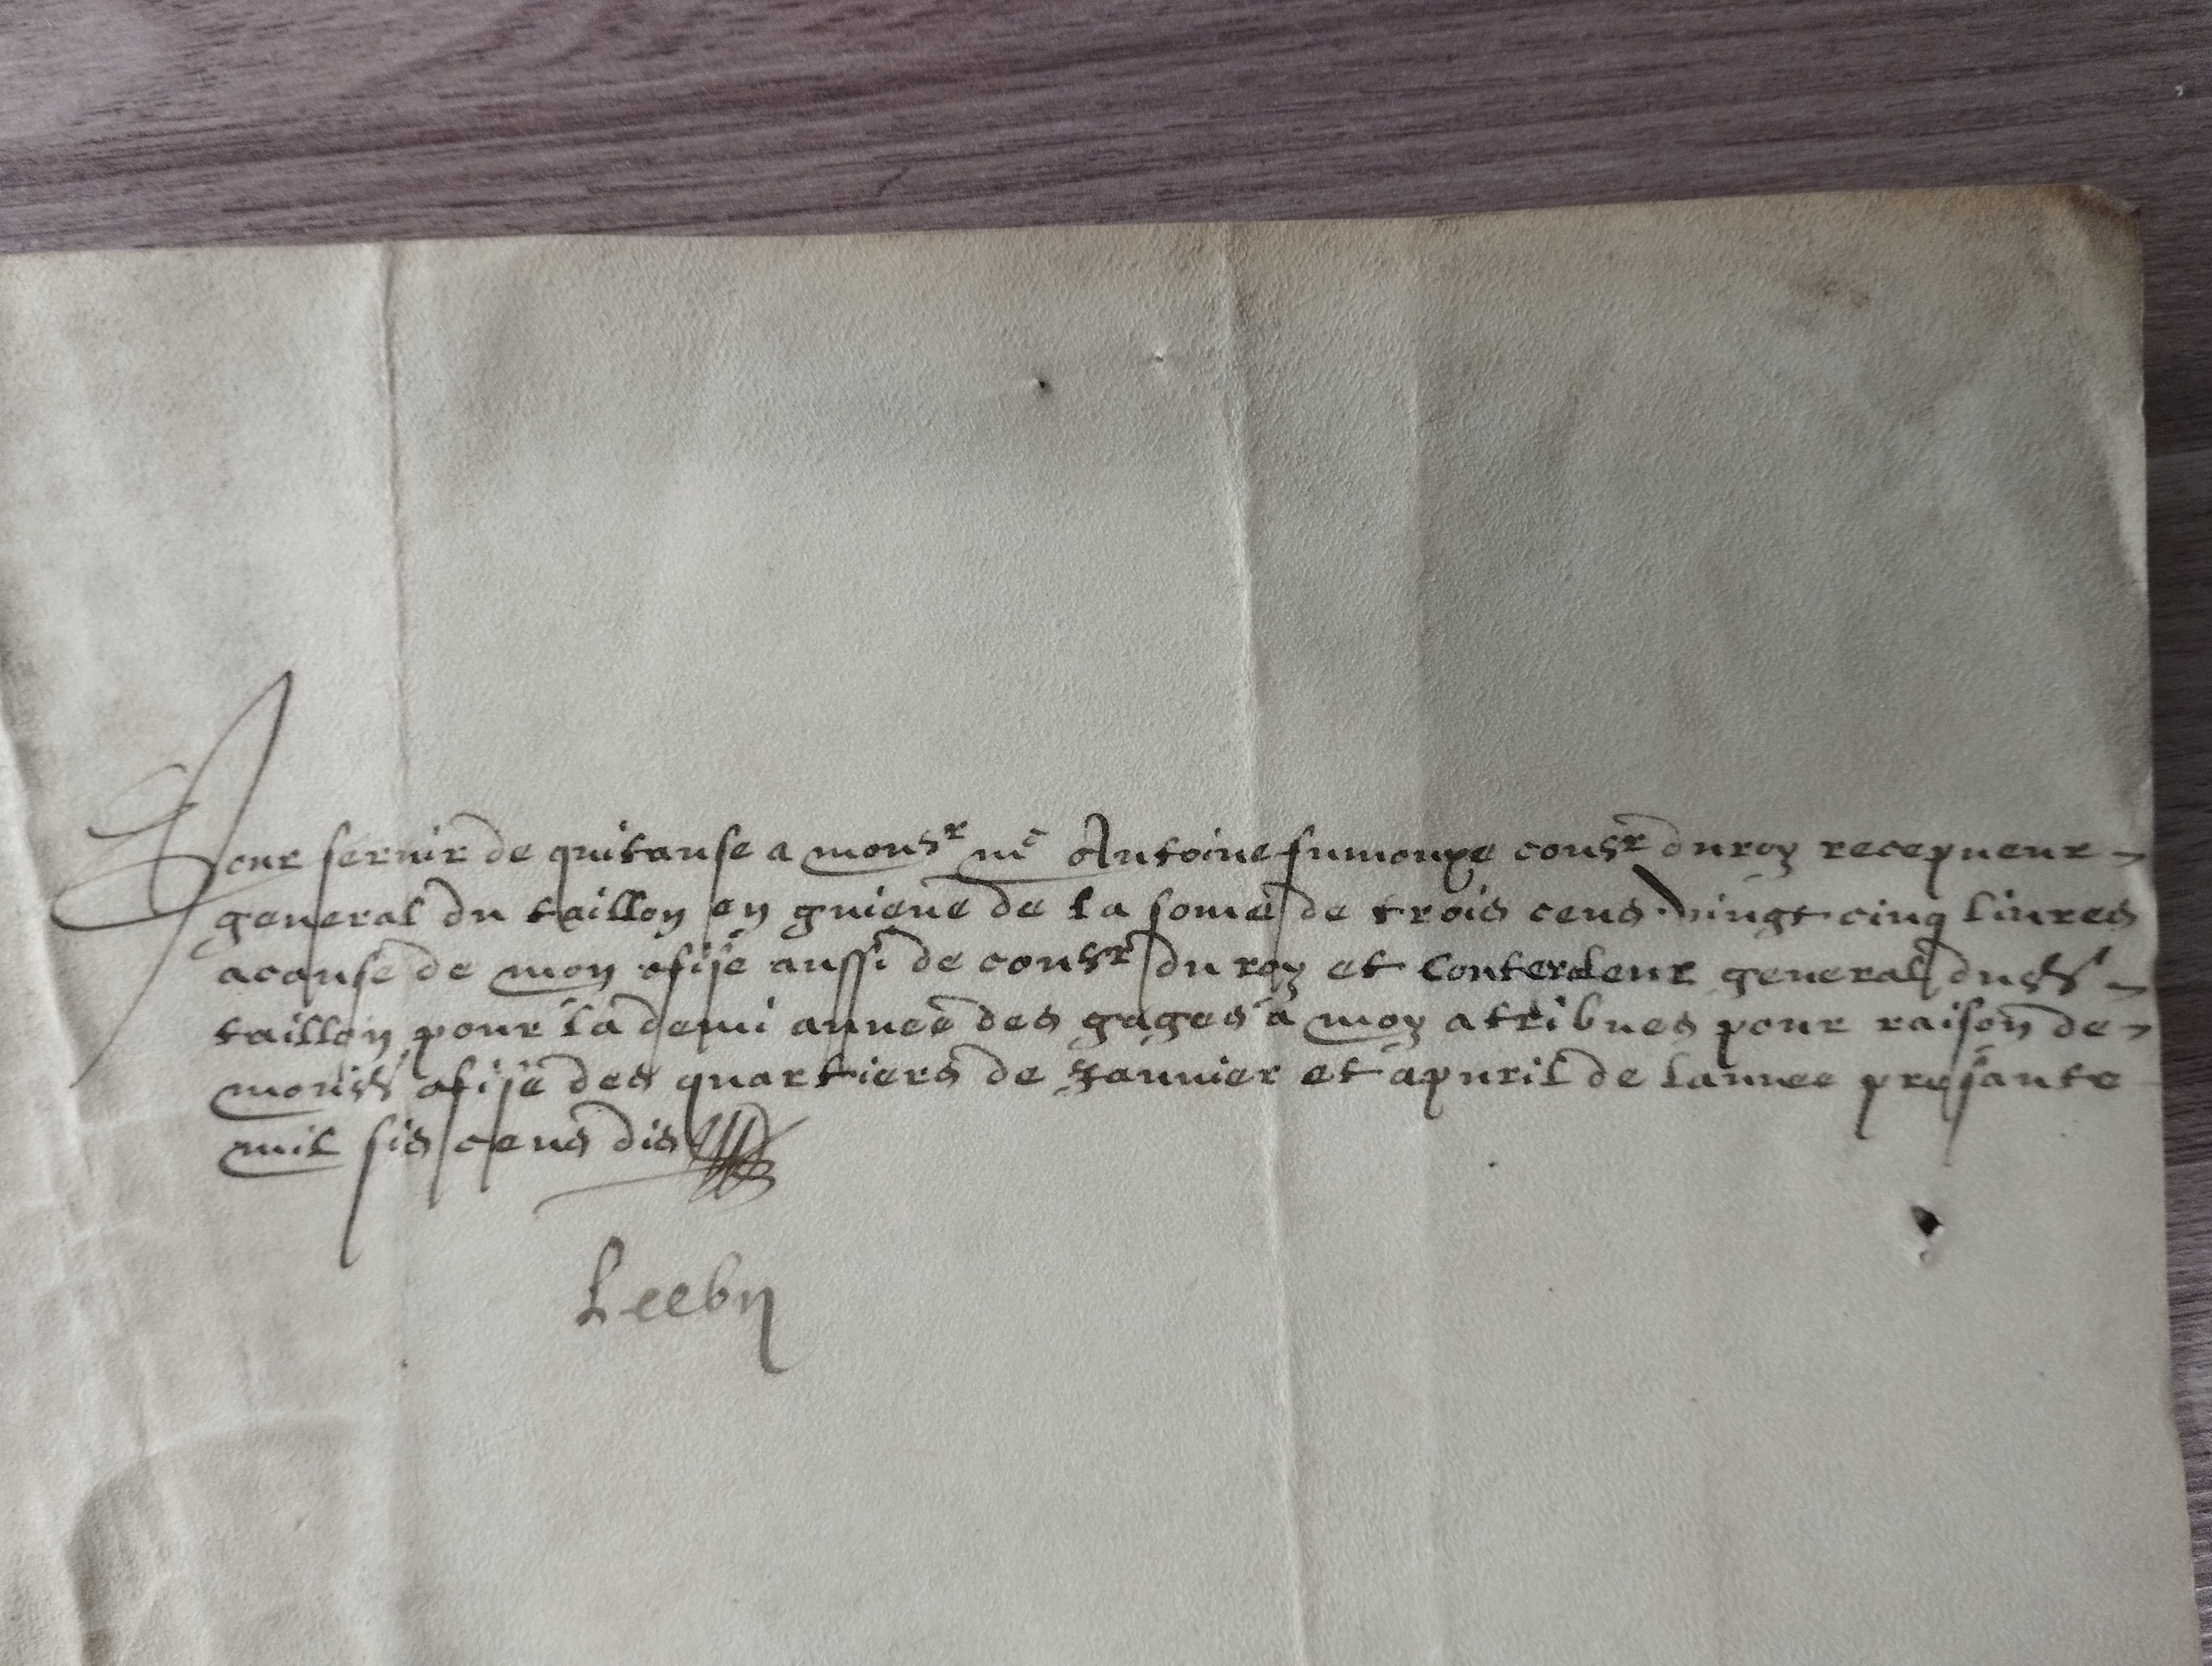 Pour servir de quitanse a mons^r m^e Antoine fumouze cons^r du roy recepueur
general du taillon en guiene de la some de trois cens vingt cinq livres
a cause de mon ofise aussi de cons^r du roy et Conteroleur general dud
taillon pour la demi annee des gages a moy atribues pour raison de
mond ofise des quartiers de Janvier et apvril de lannee presante
mil sis cens dis